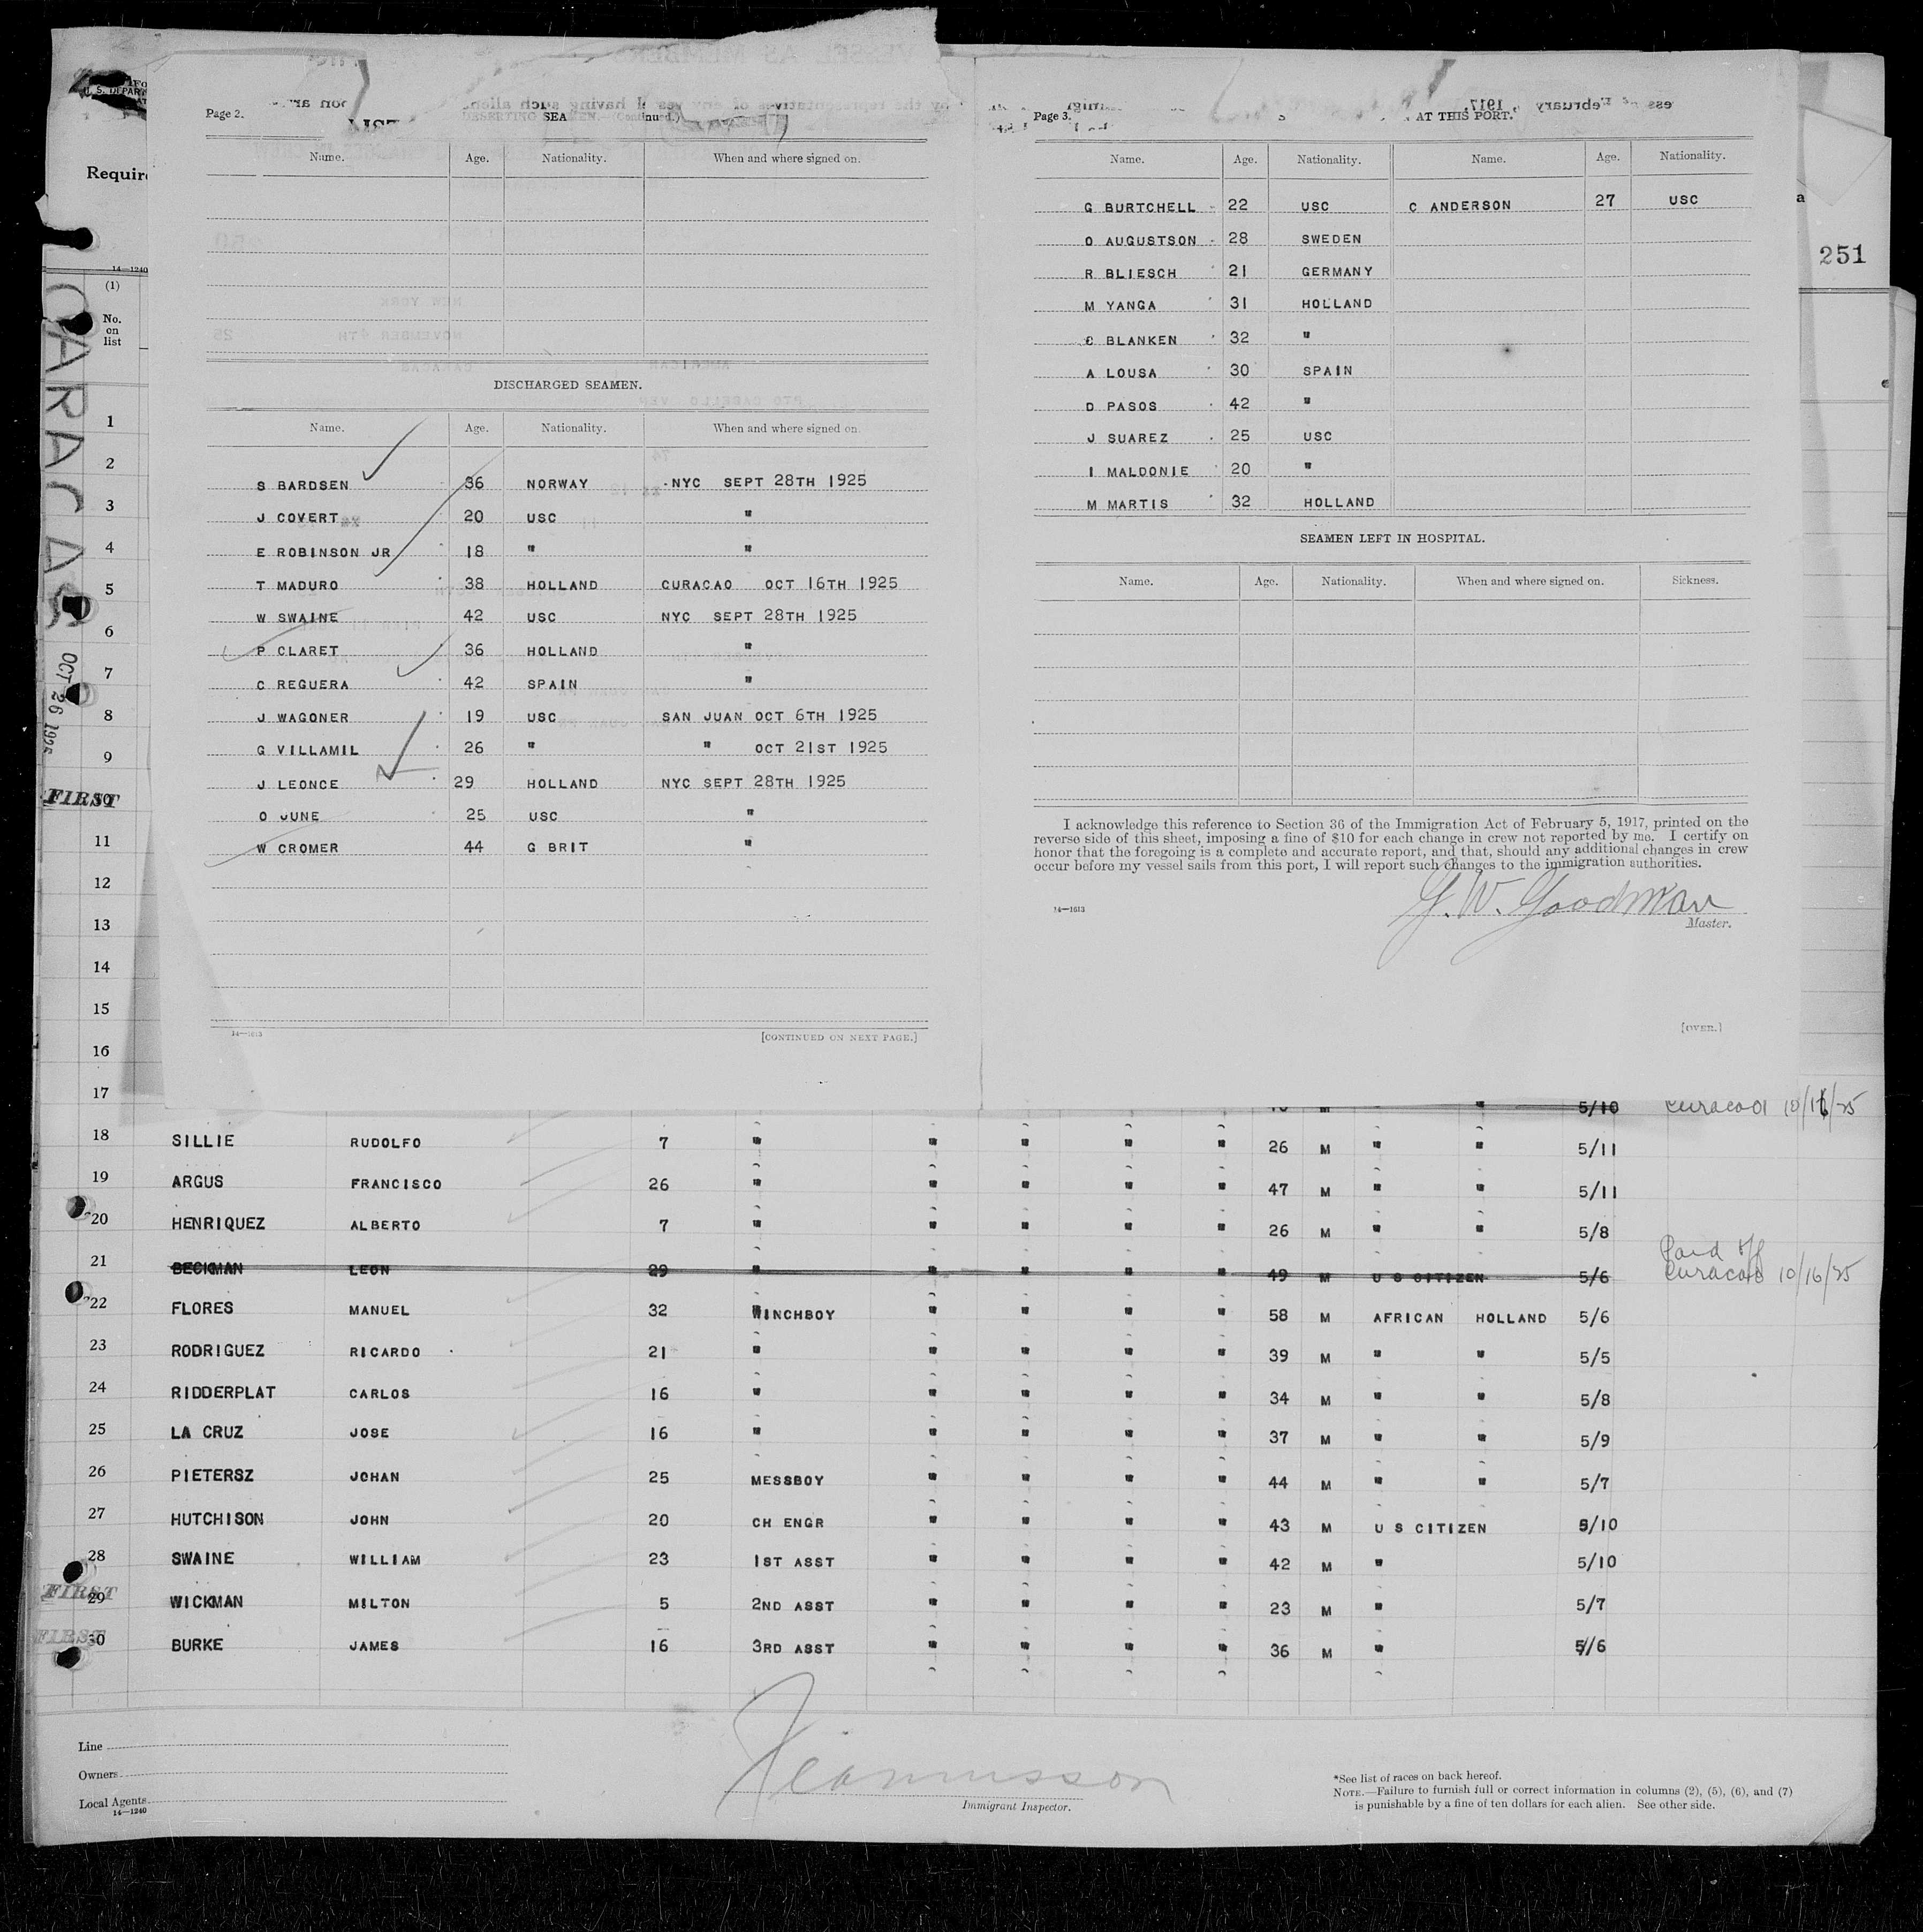 Page 2.
DESERTING SEAMEN.—(Continued.)
Name. Age. Nationality. When and where signed on.
DISCHARGED SEAMEN.
Name. Age. Nationality. When and where signed on.
S BARDSEN 36 NORWAY NYC SEPT 28TH 1925
J COVERT 20 USC "
E ROBINSON JR 18 " "
T MADURO 38 HOLLAND CURACAO OCT 16TH 1925
W SWAINE 42 USC NYC SEPT 28TH 1925
P CLARET 36 HOLLAND "
C REGUERA 42 SPAIN "
J WAGONER 19 USC SAN JUAN OCT 6TH 1925
G VILLAMIL 26 " " OCT 21ST 1925
J LEONCE 29 HOLLAND NYC SEPT 28TH 1925
O JUNE 25 USC "
W CROMER 44 G BRIT "
14—1613
[CONTINUED ON NEXT PAGE.]
Page 3.
AT THIS PORT.
Name. Age. Nationality. Name. Age. Nationality.
G BURTCHELL 22 USC C ANDERSON 27 USC
O AUGUSTSON 28 SWEDEN
R BLIESCH 21 GERMANY
M YANGA 31 HOLLAND
C BLANKEN 32 "
A LOUSA 30 SPAIN
D PASOS 42 "
J SUAREZ 25 USC
I MALDONIE 20 "
M MARTIS 32 HOLLAND
SEAMEN LEFT IN HOSPITAL.
Name. Age. Nationality. When and where signed on. Sickness.
I acknowledge this reference to Section 36 of the Immigration Act of February 5, 1917, printed on the
reverse side of this sheet, imposing a fine of $10 for each change in crew not reported by me. I certify on
honor that the foregoing is a complete and accurate report, and that, should any additional changes in crew
occur before my vessel sails from this port, I will report such changes to the immigration authorities.
G. W. Goodman
14—1613
Master.
[OVER.]
251
U. S. DEPAR
Require
14—1240
(1)
No.
on
list
CARACAS
OCT 26 1925
1
2
3
4
5
6
7
8
9
FIRST 10
11
12
13
14
15
16
17 " 5/10 Curacao 10/16/25
18 SILLIE RUDOLFO 7 " " " " " 26 M " " 5/11
19 ARGUS FRANCISCO 26 " " " " " 47 M " " 5/11
20 HENRIQUEZ ALBERTO 7 " " " " " 26 M " " 5/8
21 BECKMAN LEON 29 " " " " " 49 M U S CITIZEN 5/6 Paid off Curacao 10/16/25
22 FLORES MANUEL 32 WINCHBOY " " " " 58 M AFRICAN HOLLAND 5/6
23 RODRIGUEZ RICARDO 21 " " " " " 39 M " " 5/5
24 RIDDERPLAT CARLOS 16 " " " " " 34 M " " 5/8
25 LA CRUZ JOSE 16 " " " " " 37 M " " 5/9
26 PIETERSZ JOHAN 25 MESSBOY " " " " 44 M " " 5/7
27 HUTCHISON JOHN 20 CH ENGR " " " " 43 M U S CITIZEN 5/10
28 SWAINE WILLIAM 23 1ST ASST " " " " 42 M " 5/10
FIRST 29 WICKMAN MILTON 5 2ND ASST " " " " 23 M " 5/7
FIRST 30 BURKE JAMES 16 3RD ASST " " " " 36 M " 5/6
Line
Owners
Local Agents
14—1240
Immigrant Inspector.
*See list of races on back hereof.
NOTE.—Failure to furnish full or correct information in columns (2), (5), (6), and (7)
is punishable by a fine of ten dollars for each alien. See other side.